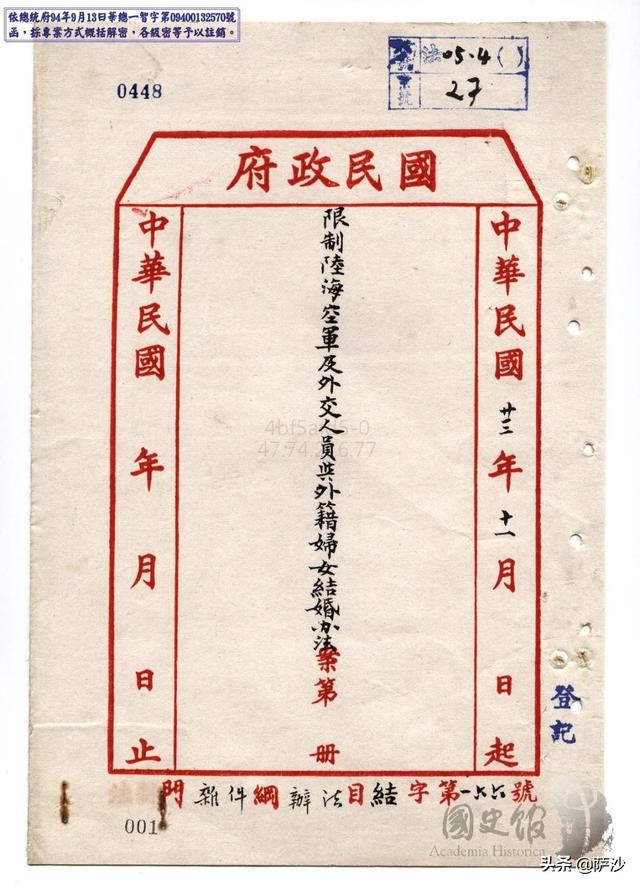 依總統府94年9月13日華總一智字第09400132570號
函，採專案方式概括解密，各級密等予以註銷。
0448
法05.4()
號
27
國民政府
中華民國廿三年十一月 日起
限制陸海空軍及外交人員與外籍婦女結婚办法案第 冊
中華民國 年 月 日止
登記
門雜件綱辦法目結字第一六六號
001
國史館
Academia Historica
4bf5a
5-0
47.74.
6.77
头条@萨沙